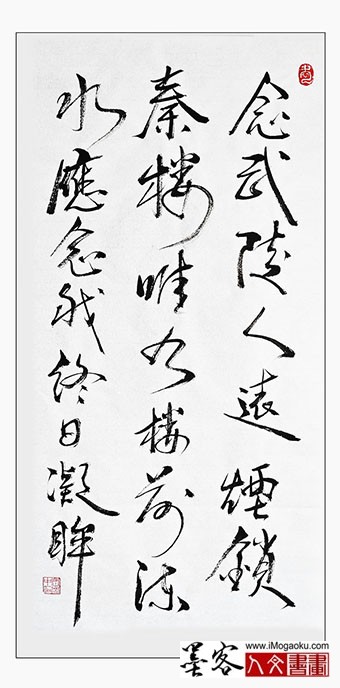 念武陵人遠煙鎖
秦樓唯有樓前流
水應念我終日凝眸
www.iMogaoku.com
墨客人文書畫